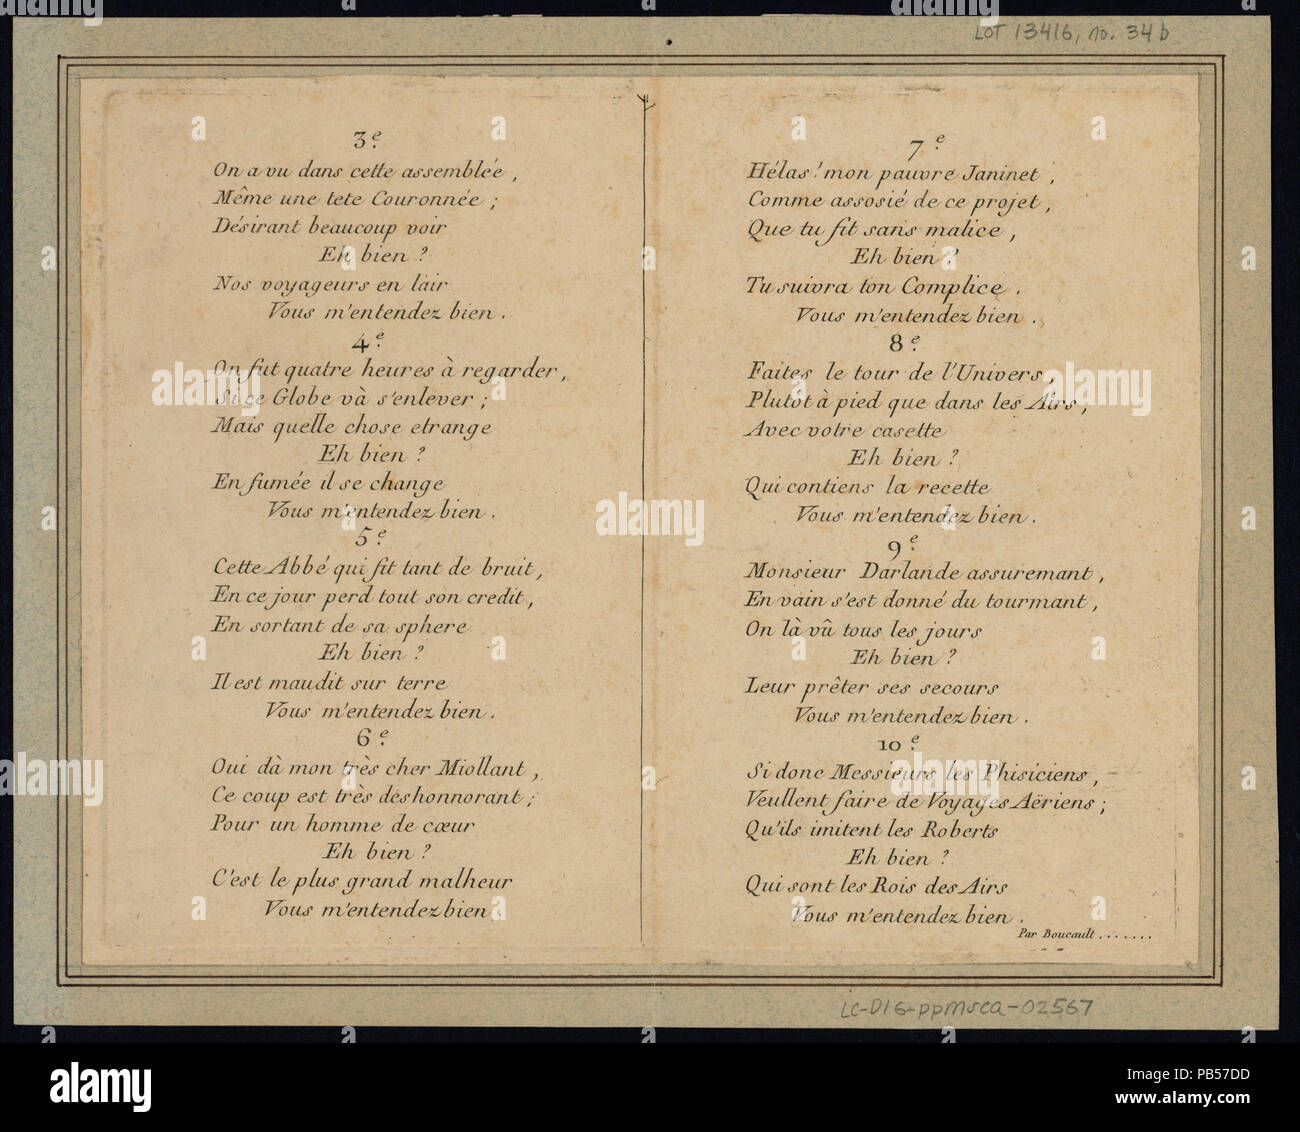 LOT 13416, no. 34 b
3e.
On a vu dans cette assemblée,
Même une tete Couronnée ;
Désirant beaucoup voir
Eh bien ?
Nos voyageurs en lair
Vous m'entendez bien .
4e.
On fut quatre heures à regarder,
Si ce Globe và s'enlever ;
Mais quelle chose etrange
Eh bien ?
En fumée il se change
Vous m'entendez bien .
5e.
Cette Abbé qui fit tant de bruit,
En ce jour perd tout son credit,
En sortant de sa sphere
Eh bien ?
Il est maudit sur terre
Vous m'entendez bien .
6e.
Oui dà mon très cher Miollant,
Ce coup est très deshonnorant ;
Pour un homme de cœur
Eh bien ?
C'est le plus grand malheur
Vous m'entendez bien
7e.
Hélas ! mon pauvre Janinet,
Comme assosié de ce projet,
Que tu fit sans malice,
Eh bien ?
Tu suivra ton Complice .
Vous m'entendez bien .
8e.
Faites le tour de l'Univers,
Plutôt à pied que dans les Airs,
Avec votre casette
Eh bien ?
Qui contiens la recette
Vous m'entendez bien .
9e.
Monsieur Darlande assuremant,
En vain s'est donné du tourmant,
On là vû tous les jours
Eh bien ?
Leur prêter ses secours
Vous m'entendez bien .
10e.
Si donc Messieurs les Phisiciens,
Veullent faire de Voyages Aëriens ;
Qu'ils imitent les Roberts
Eh bien ?
Qui sont les Rois des Airs
Vous m'entendez bien .
Par Boucault .......
LC-D16-ppmsca-02567
alamy
a
alamy
Image ID: PB57DD
www.alamy.com